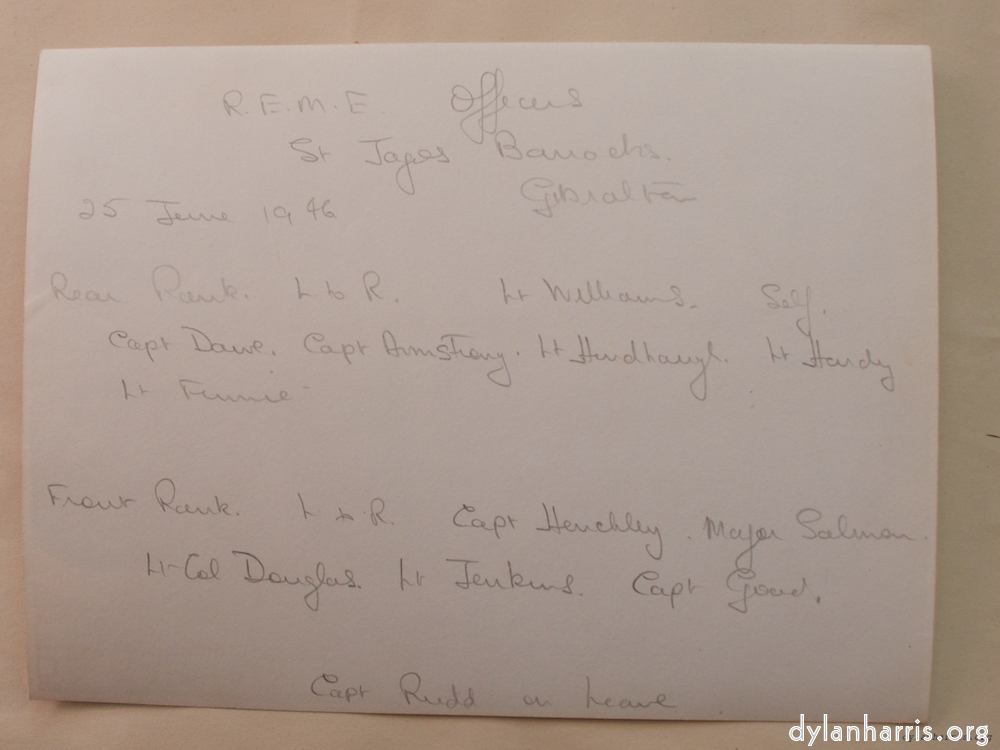 R.E.M.E. Officers
St Jagos Barracks.
Gibraltar
25 June 1946
Rear Rank. L to R. Lt Williams. Self.
Capt Dawe. Capt Armstrong. Lt Hardy
Lt Finnie
Front Rank. L to R. Capt Henchley. Major Salmon.
Lt Col Douglas. Lt Jenkins. Capt Good.
Capt Rudd on Leave
dylanharris.org